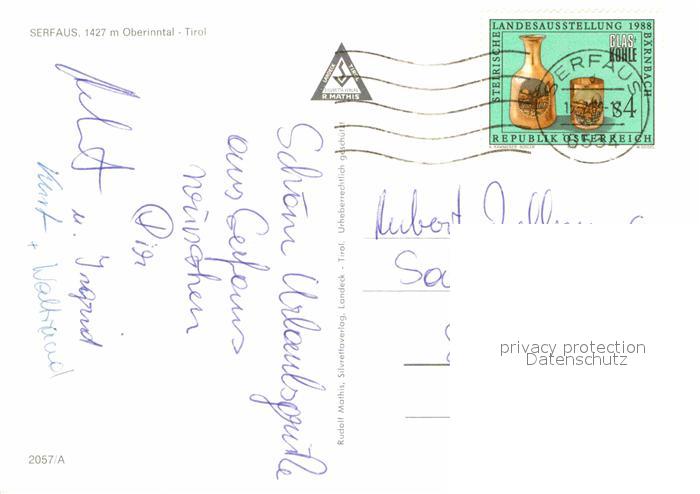 SERFAUS, 1427 m Oberinntal - Tirol
Schöne Urlaubsgrüße
aus Serfaus
wünschen
Dir
u. Ingrid
Kurt + Waltraud
2057/A
LANDECK TIROL
SILVRETTA VERLAG
R. MATHIS
Rudolf Mathis, Silvrettaverlag, Landeck - Tirol. Urheberrechtlich geschützt!
STEIRISCHE LANDESAUSSTELLUNG 1988 BÄRNBACH
GLAS+
KOHLE
S4
REPUBLIK ÖSTERREICH
SERFAUS
6534
Hubert
privacy protection
Datenschutz